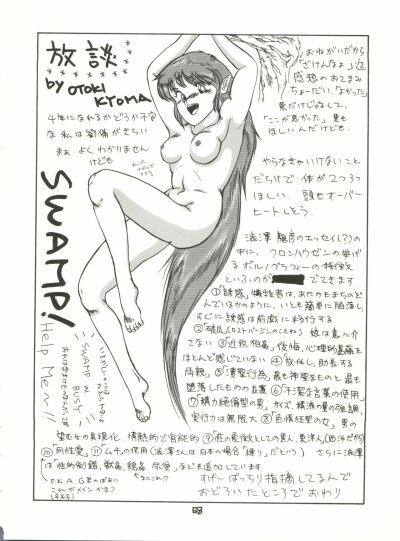 放談
by OTOKI
KYOMA
4年になれるかどうか不安
な私は劉備がきらい
まぁ よくわかりません
けども
SWAMP!
Help Me~!!
SWAMP 2
BUSY
おねがいだから
「ざけんなよ」近
感想のおてまみ
ちょーだい。「よかった」
だけじゃなしに、
「ここが悪かった」
ほしいんだけども。
やらなきゃいけないこと
だらけで、体が2つうっ
ほしい。頭もオーバー
ヒートしとう。
澁澤龍彦のエッセイ(?)の
中に、クロンハウゼンの挙げ
るポルノグラフィーの特徴
といふのが でてきます
①「誘惑」犠牲者は、あたかもまちのぞ
んでいるかのように、いとも簡単に陥落し、
すぐに誘惑は前戯に移行する
②「破瓜」(ロストバージンのことね) 娘は意に介
さない ③「近親相姦」後悔、心理的葛藤を
ほとんど感じていない ④「放任し、助長する
両親」⑤「瀆聖行為」最も神聖なものと最も
堕落したものの並置 ⑥「不潔な言葉の使用」
⑦「精力絶倫型の男」サイズ、精液の量の強調
実行力は無限大 ⑧「色情狂型の女」男の
望む女の具現化、情熱的で官能的 ⑨「性の象徴としての黒人、東洋人」(西洋だから)
⑩「同性愛」⑪「ムチの使用」(澁澤さんは日本の場合「縛り」だという) さらに澁澤
は「性的倒錯、獣姦、鶏姦、尿愛」なども追加しています
P.K.A.G 君のばあい
これがメインかな?
なにこれ!?
すげ~ばっちり指摘してるんで
おどろいたところで おわり
53